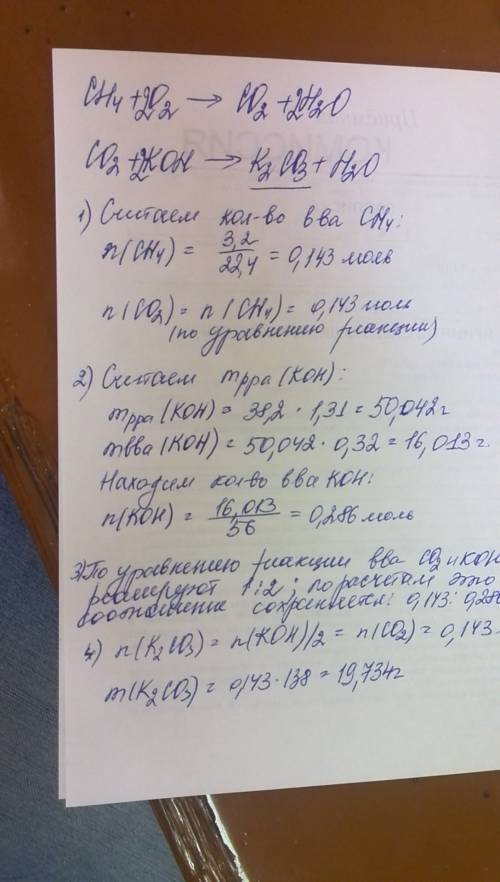 CH4 + 2O2 → CO2 + 2H2O
CO2 + 2KOH → K2CO3 + H2O
1) Считаем кол-во вва CH4:
n(CH4) = 3,2/22,4 = 0,143 моль
n(CO2) = n(CH4) = 0,143 моль
(по уравнению реакции)
2) Считаем mрра (KOH):
mрра (KOH) = 38,2 · 1,31 = 50,042 г
mвва (KOH) = 50,042 · 0,32 = 16,013 г
Находим кол-во вва KOH:
n(KOH) = 16,013/56 = 0,286 моль
3) По уравнению реакции вва CO2 и KOH
реагируют 1:2; по расчетам это
соотношение сохраняется: 0,143:0,286
4) n(K2CO3) = n(KOH)/2 = n(CO2) = 0,143
m(K2CO3) = 0,143 · 138 = 19,734г